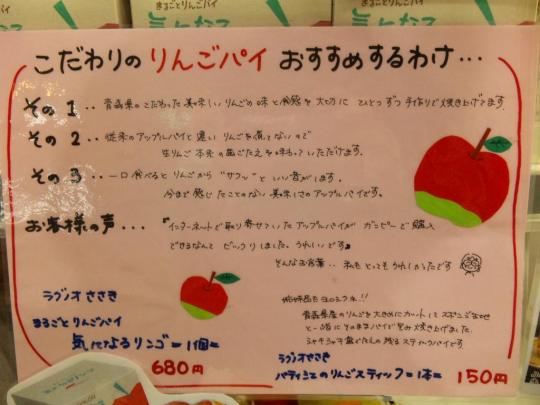 まるごとりんごパイ
まるごとりんごパイ
気になる
気になる
こだわりの りんごパイ おすすめするわけ...
その1.. 青森県のこだわった美味しいりんごの味と食感を大切に ひとつずつ手作りで焼き上げてます。
その2.. 従来のアップルパイと違い りんごを煮てないので
生りんご本来の歯ごたえを味わっていただけます。
その3.. 一口食べるとりんごから"サクッ"といい音がします。
今まで感じたことのない美味しさのアップルパイです。
お客様の声... "インターネットで取り寄せていたアップルパイが ガーラピーで購入
できるなんて ビックリしました。うれしいです"
そんなお言葉.. 私もとってもうれしかったです
ラグノオささき
まるごとりんごパイ
気になるリンゴ=1個=
680円
姉妹品もヨロシクネ!!
青森県産のりんごを大きめにカットしてスポンジ生地
と一緒にそのままパイで包み焼き上げました。
シャキシャキ食かんの残るスティックパイです。
ラグノオささき
パティシエのりんごスティック=1本=
150円